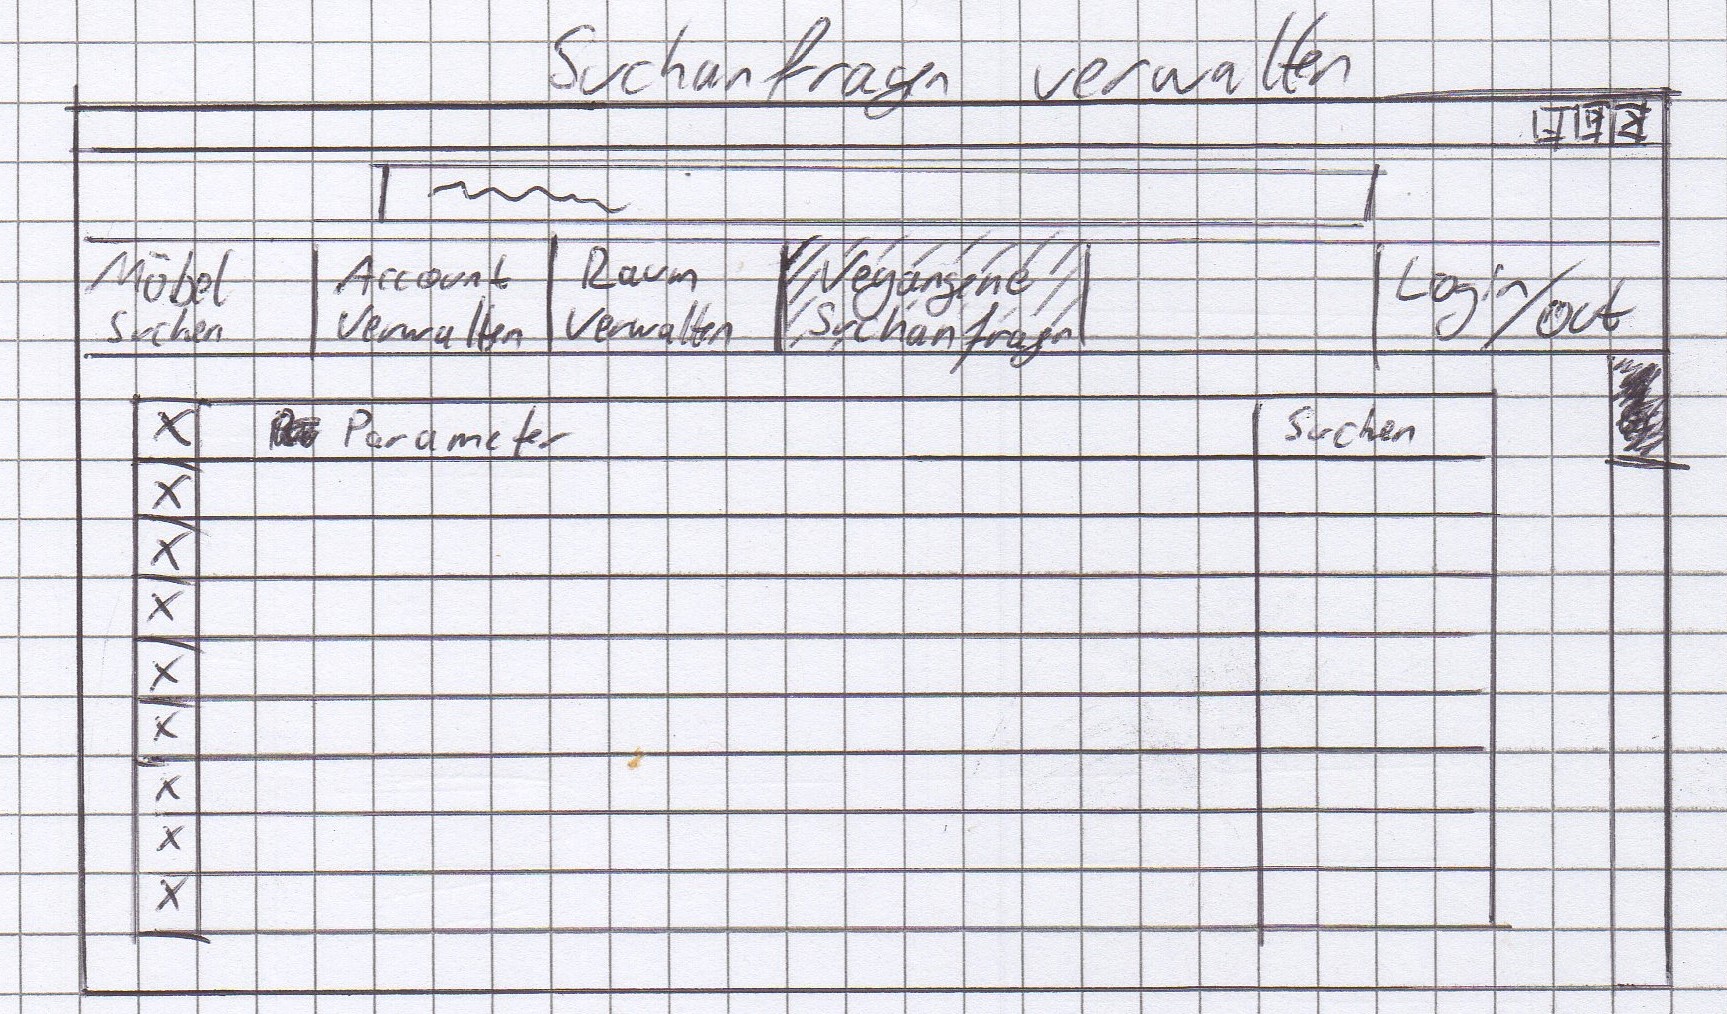 Suchanfragen verwalten
Möbel Suchen
Account Verwalten
Raum Verwalten
Vegangene Suchanfragen
Login/out
X Parameter Suchen
X
X
X
X
X
X
X
X